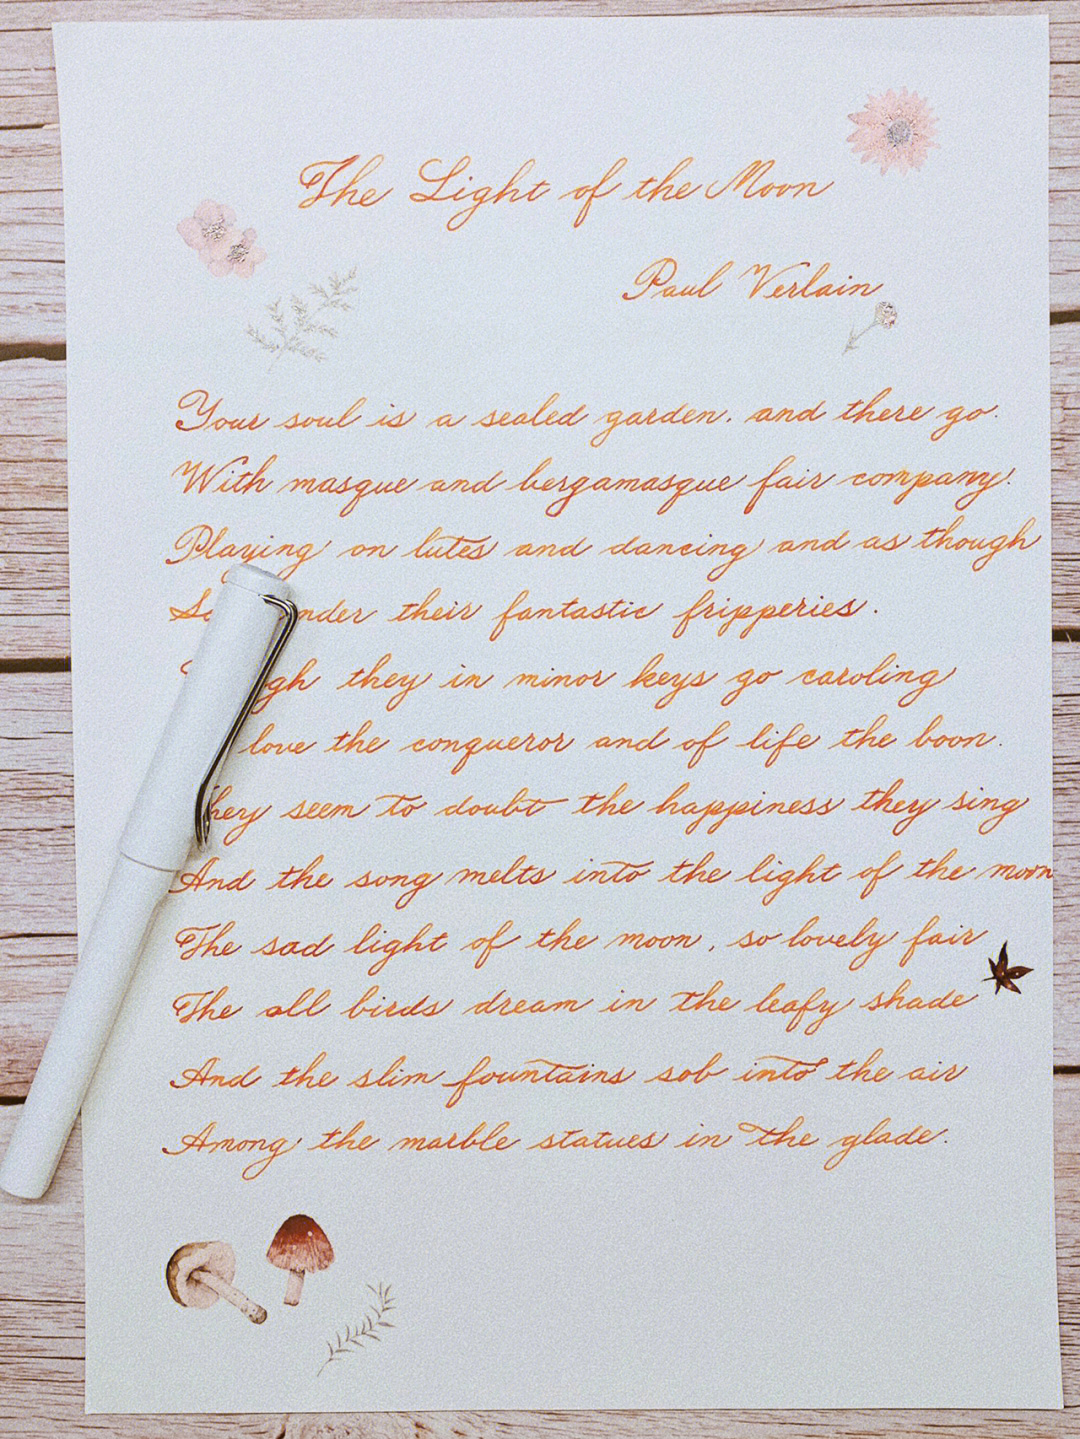 The Light of the Moon
Paul Verlain
Your soul is a sealed garden. and there go.
With masque and bergamasque fair company.
Playing on lutes and dancing and as though
their fantastic fripperies.
they in minor keys go caroling
love the conqueror and of life the boon.
hey seem to doubt the happiness they sing
And the song melts into the light of the moon
The sad light of the moon, so lovely fair
The all birds dream in the leafy shade
And the slim fountains sob into the air
Among the marble statues in the glade.